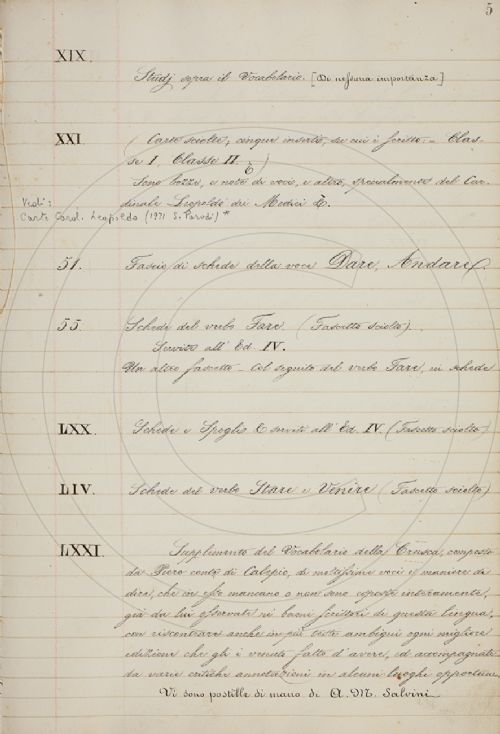 5
XIX.
Studj sopra il Vocabolario. [Di nessuna importanza]
XXI.
(Carte sciolte, cinque inserti, su cui è scritto: - Clas-
se I Classe II E)
Sono bozze, e note di voci, e altro, specialmente del Car-
dinale Leopoldo dei Medici E.
Vedi:
Carte Card. Leopoldo (1971 S. Parodi) *
51.
Fascio di schede della voce Dare, Andare.
55.
Schede del verbo Fare. (Fascetto sciolto).
Servito all' Ed. IV.
Un altro fascetto - Col seguito del verbo Fare, in schede
LXX.
Schede e Spoglio E serviti all' Ed. IV. (Fascetto sciolto)
LIV.
Schede del verbo Stare e Venire (Fascetto sciolto)
LXXI.
Supplimento del Vocabolario della Crusca, composto
da Piero conte di Calepio, di moltissime voci e maniere di
dire, che in esso mancano o non sono esposte interamente,
già da lui osservate ne' buoni scrittori di questa lingua,
con riscontrare anche in più testi ambigui ogni migliore
edizione che gli è venuto fatto d'avere, ed accompagnate
da varie critiche annotazioni in alcuni luoghi opportuni
Vi sono postille di mano di A. M. Salvini